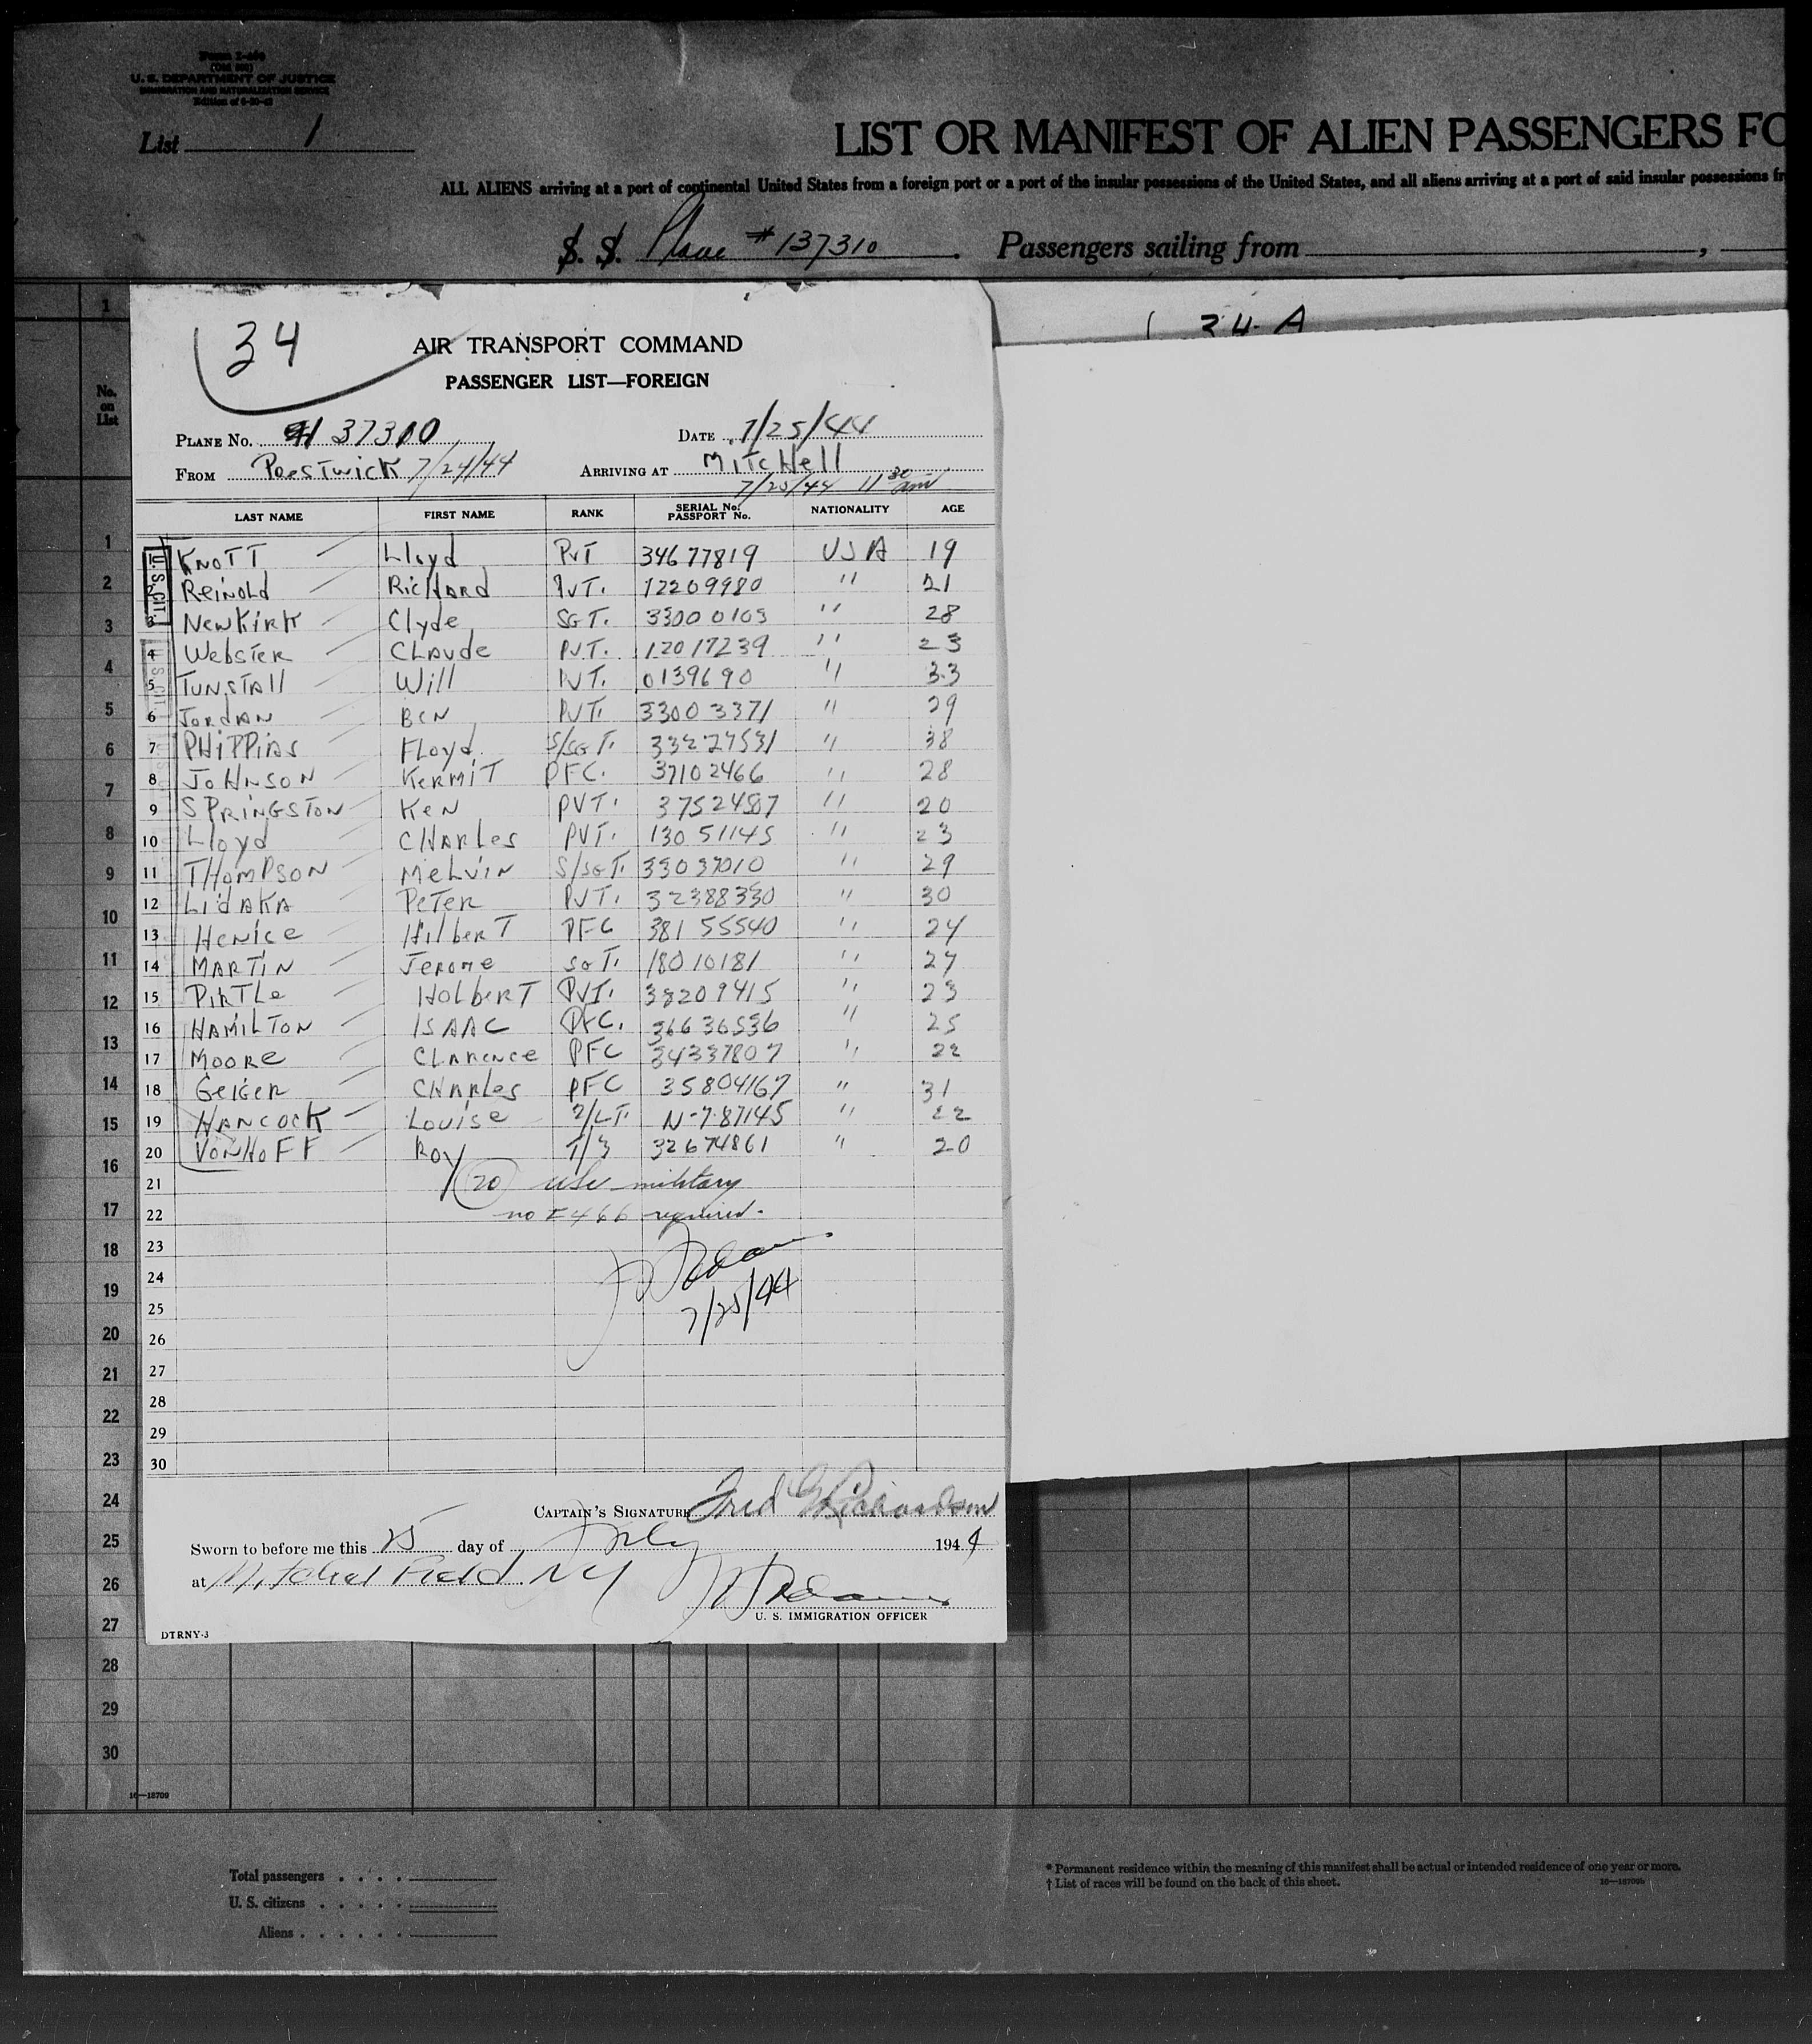 Form I-466
(Old 500)
U. S. DEPARTMENT OF JUSTICE
IMMIGRATION AND NATURALIZATION SERVICE
List 1
LIST OR MANIFEST OF ALIEN PASSENGERS FO
ALL ALIENS arriving at a port of continental United States from a foreign port or a port of the insular possessions of the United States, and all aliens arriving at a port of said insular possessions fr
S. S. Plane #137310 . Passengers sailing from ,
34 A
34
AIR TRANSPORT COMMAND
PASSENGER LIST—FOREIGN
PLANE No. 37310 DATE 7/25/44
FROM Prestwick 7/24/44 ARRIVING AT Mitchell
7/25/44 11 30 am
No. on List
LAST NAME FIRST NAME RANK SERIAL No. PASSPORT No. NATIONALITY AGE
U.S. CIT.
1 KNOTT Lloyd PVT 34677819 USA 19
2 Reinold RicHARD PVT. 12209980 " 21
3 NewKirk Clyde SGT. 33000103 " 28
4 Webster CLAude PVT. 12017239 " 23
5 TUNSTAll Will PVT. 0139690 " 33
6 JORDAN BEN PVT. 33003371 " 29
7 PHiPPiNS Floyd S/SGT. 33227531 " 38
8 JOHNSON KERMIT PFC. 37102466 " 28
9 SPRINGSTON KEN PVT. 37524587 " 20
10 Lloyd CHARLes PVT. 13051145 " 23
11 THOMPSON MELVIN S/SGT. 33037010 " 29
12 LidAKA PETER PVT. 32388330 " 30
13 HENiCe HilberT PFC 38155540 " 24
14 MARTIN JEROME SGT. 18010181 " 27
15 PIRTLe HOLbERT PVT. 38209415 " 23
16 HAMILTON ISAAC PFC. 36636536 " 25
17 MOORE CLARENCE PFC 34337807 " 22
18 GEIGER CHARLes PFC 35804167 " 31
19 HANCOCK LOUISE 2/LT. N-787145 " 22
20 VONHOFF ROY T/3 32674861 " 20
21 20 USA military
22 no I 466 required.
23
24
25 7/25/44
26
27
28
29
30
CAPTAIN'S SIGNATURE Fred G Richardson
Sworn to before me this 25 day of July 1944
at Mitchel Field NY
U. S. IMMIGRATION OFFICER
DTRNY-3
1
2
3
4
5
6
7
8
9
10
11
12
13
14
15
16
17
18
19
20
21
22
23
24
25
26
27
28
29
30
16—18709
Total passengers
U. S. citizens
Aliens
* Permanent residence within the meaning of this manifest shall be actual or intended residence of one year or more.
† List of races will be found on the back of this sheet.
16—18709b